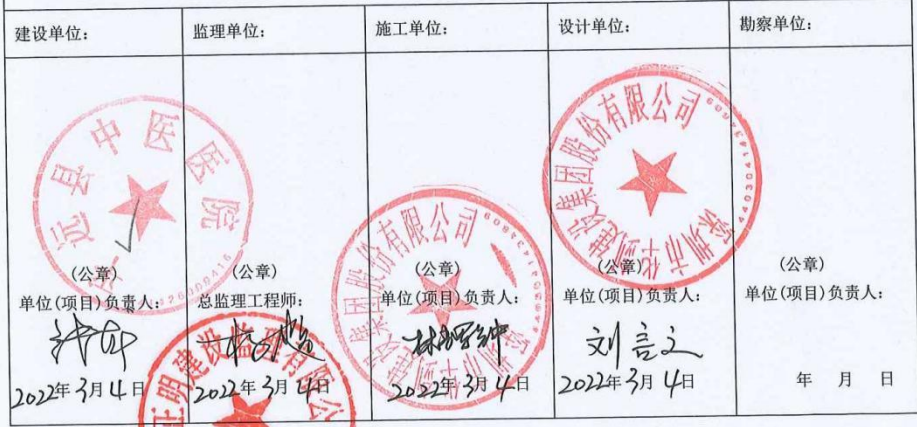 建设单位:
监理单位:
施工单位:
设计单位:
勘察单位:
远县中医医院
(公章)
单位(项目)负责人:
2022年3月4日
(公章)
总监理工程师:
明建设监理有限公
2022年3月4日
建设集团股份有限公司
深圳市
(公章)
单位(项目)负责人:
2022年3月4日
深圳市华剑建设集团股份有限公司
(公章)
单位(项目)负责人:
刘言文
2022年3月4日
(公章)
单位(项目)负责人:
年 月 日